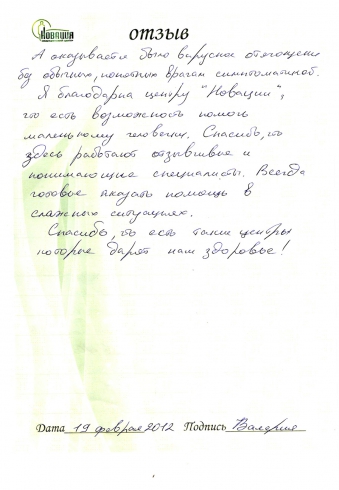 Новация
ОТЗЫВ
А оказывается было вирусное отягощение
без обычных, понятных врачам симптоматикой.
Я благодарна центру "Новации",
что есть возможность помочь
маленькому человечку. Спасибо, что
здесь работают отзывчивые и
понимающие специалисты. Всегда
готовые оказать помощь в
сложных ситуациях.
Спасибо, что есть такие центры
которые дарят нам здоровье!
Дата 19 февраля 2012 Подпись Валерия